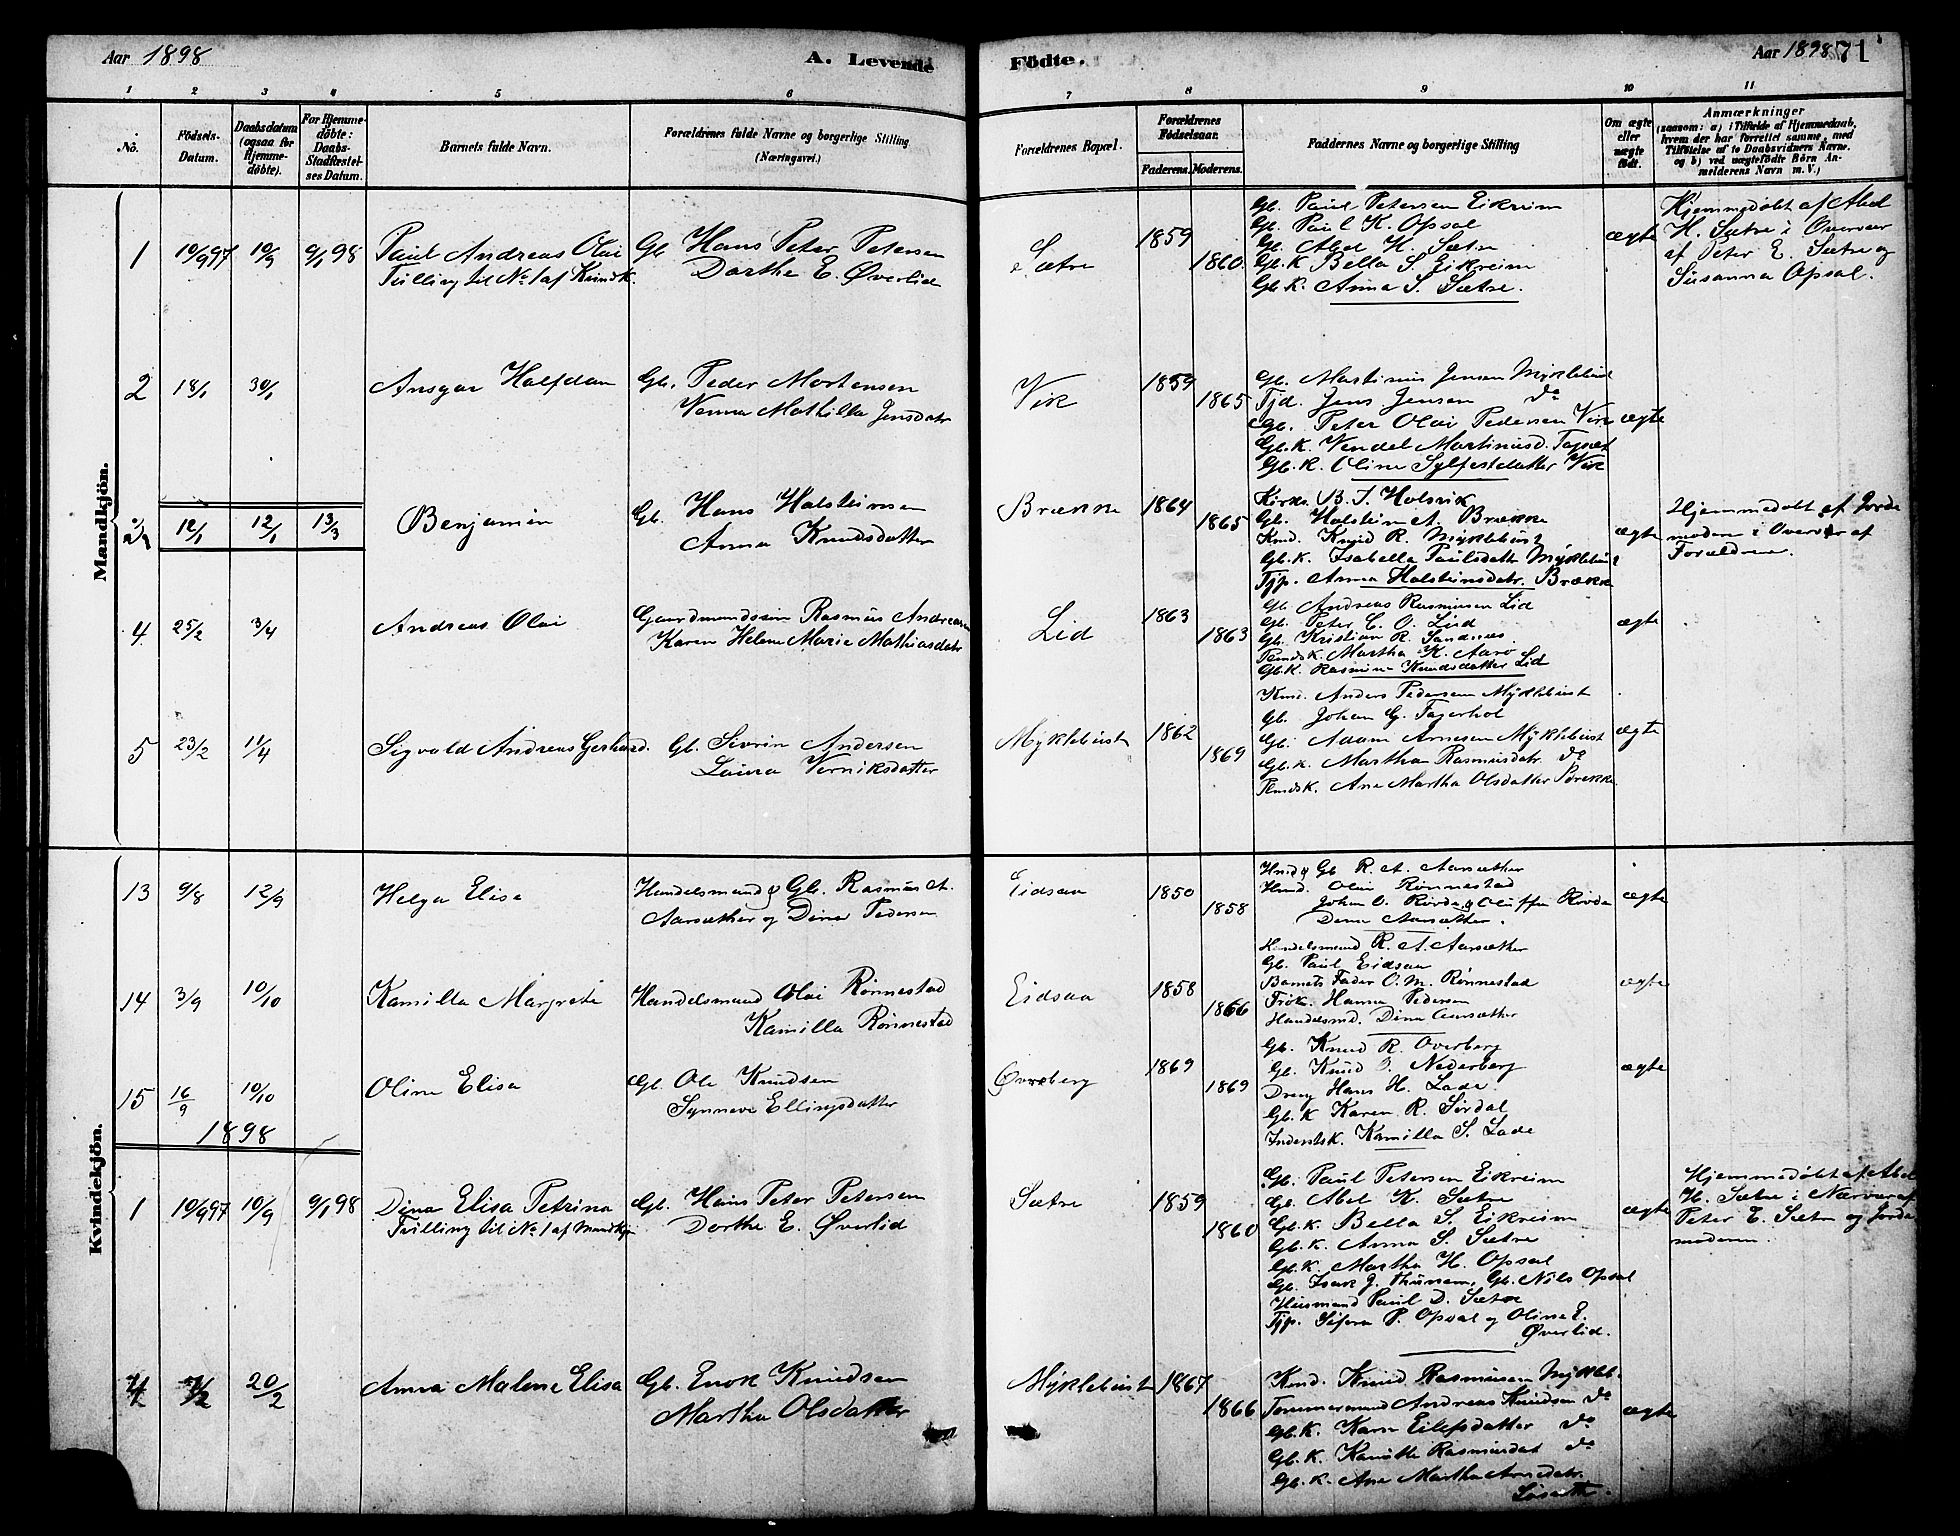 Aar 1898
A. Levende
Födte.
Aar 1898
71
1 2 3 4 5 6 7 8 9 10 11
No.
Födsels-
Datum.
Daabsdatum
(ogsaa for
Hjemme-
døbte).
For Hjemme-
døbte:
Daabs-
Stadfæstel-
ses Datum.
Barnets fulde Navn.
Forældrenes fulde Navne og borgerlige Stilling
(Næringsvei.)
Forældrenes Bopæl.
Forældrenes
Fødselsaar.
Faderens. Moderens.
Faddernes Navne og borgerlige Stilling
Om ægte
eller
uægte
født.
Anmærkninger
(saasom: a) i Tilfælde af Hjemmedaab,
hvem der har forrettet samme, med
Tilföielse af to Daabsvidners Navne,
og b) ved uægtefödte Börn An-
melderens Navn m. V.)
Mandkjön.
1 10/9 97 10/9 9/1 98
Paul Andreas Olai
Trilling til No 1 af Kvindk.
Gb. Hans Peter Petersen
Dorthe E. Øverlid
Sætre
1859
1860
Gb. Paul Petersen Eikreim
Gb. Paul K. Opsal
Gb. Abel H. Sætre
Gb.K Bella S. Eikreim
Gb.K. Anna S. Sætre.
ægte
Hjemmedøbt af Abel
H. Sætre i Overvær
af Peter E. Sætre og
Susanna Opsal.
2 18/1 30/1
Ansgar Halfdan
Gb. Peder Mortensen
Verina Mathilda Jensdatr
Vik
1859
1865
Gb. Martinus Jensen Myklebust
Tjd. Jens Jensen do
Gb. Peter Olai Pedersen Vik
Gb.K. Vendel Martinusd.
Gb.K. Oline Sylfestdatter Vik
ægte
3 12/1 12/1 13/3
Benjamin
Gb. Hans Holsteinsen
Anna Knudsdatter
Brække
1864
1865
Kirks. B. J. Holsvik
Gb. Holstein A. Brække
Kmd. Knud R. Myklebust
Gb.K. Isabella Paulsdatt. Myklebust
Tjp. Anna Holsteinsdatr. Brække
ægte
Hjemmedøbt af Jorde
moderen i Overvær af
Forældrene.
4 25/2 3/4
Andreas Olai
Gaardmandssøn Rasmus Andreasen
Karen Helene Marie Mathiasdatr
Lid
1863
1863
Gb. Andreas Rasmusen Lid
Gb. Peter C. O. Lid
Gb. Kristian R. Sandnes
Pemdsk. Martha K. Aarø
Gb.K. Rasmine Knudsdatter Lid
ægte
5 23/2 11/4
Sigvald Andreas Gerhard.
Gb. Sivrin Andersen
Laura Verniksdatter
Myklebust
1862
1869
Kmd. Anders Pedersen Myklebust
Gb. Johan G. Fagerhol
Gb. Adam Arnesen Myklebust
Gb.K. Martha Rasmusdatr. do
Pemdsk. Ane Martha Olsdatter Brække
ægte
Kvindekjön.
13 9/8 12/9
Helga Elise
Handelsmand og Gb. Rasmus A.
Aarsæther og Dina Pedersen
Eidsaa
1850
1858
Hmd og Gb R. A. Aarsæther
Hmd. Olai Rønnestad
Johan O. Røvde og Oluffa Røvde
Dina Aarsæther.
ægte
14 3/9 10/10
Kamilla Margrete
Handelsmand Olai Rønnestad
Kamilla Rønnestad
Eidsaa
1858
1866
Handelsmand R. A. Aarsæther
Gb. Paul Eidsaa
Barnets Fader O. M. Rønnestad
Frøk. Hanna Pedersen
Handelsmd. Dina Aarsæther
ægte
15 16/9 10/10
Oline Elisa
Gb. Ole Knudsen
Synneve Ellingsdatter
Øvreberg
1869
1869
Gb. Knud R. Overberg
Gb. Knud J. Nederberg
Dreng Hans H. Lade.
Gb.K Karen R. Sørdal
Inderstk. Kamilla S. Lade
ægte
1898
1 10/9 97 10/9 9/1 98
Dina Elisa Petrina
Trilling til No 1 af Mandkjøn
Gb. Hans Peter Petersen
Dorthe E. Øverlid
Sætre
1859
1860
Gb. Paul Petersen Eikreim
Gb. Abel K. Sætre
Gb.K. Bella S. Eikreim
Gb.K. Anna S. Sætre
Gb.K. Martha H. Opsal
Gb. Isak J. Thunem, Gb. Nils Opsal
Husmand Paul D. Sætre
Tjp. P. Opsal og Oline E.
Øverlid.
ægte
Hjemmedøbt af Abel
H. Sætre i Nærvær af
Peter E. Sætre og Jorde
moderen.
2 7/2 20/2
Anna Malene Elisa
Gb. Enok Knudsen
Martha Olsdatter
Myklebust
1867
1866
Kmd. Knud Rasmusen Mykleb.
Tømmermand Andreas Knudsen do
Gb.K. Karn Eilefsdatter do
Gb.K. Rasmusdat do
Gb.K. Ane Martha Arnedatr.
ægte